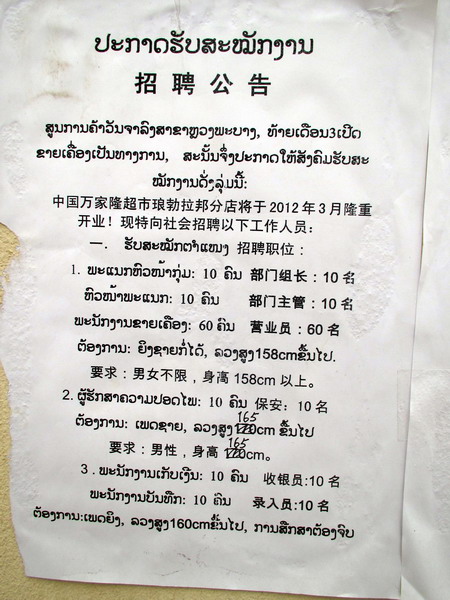 ປະກາດຮັບສະໝັກງານ
招聘公告
ສູນການຄ້າວັນຈາລົງສາຂາຫຼວງພະບາງ, ທ້າຍເດືອນ3ເປີດ
ຂາຍເຄື່ອງເປັນທາງການ, ສະນັ້ນຈຶ່ງປະກາດໃຫ້ສັງຄົມຮັບສະ
ໝັກງານດັ່ງລຸ່ມນີ້:
中国万家隆超市琅勃拉邦分店将于 2012 年 3 月隆重
开业！现特向社会招聘以下工作人员：
一. ຮັບສະໝັກຕຳແໜງ 招聘职位：
1. ພະແນກຫົວໜ້າກຸ່ມ: 10 ຄົນ 部门组长：10 名
ຫົວໜ້າພະແນກ: 10 ຄົນ 部门主管：10 名
ພະນັກງານຂາຍເຄື່ອງ: 60 ຄົນ 营业员：60 名
ຕ້ອງການ: ຍິງຊາຍກໍ່ໄດ້, ລວງສູງ158cmຂຶ້ນໄປ.
要求：男女不限，身高 158cm 以上。
2. ຜູ້ຮັກສາຄວາມປອດໄພ: 10 ຄົນ 保安：10 名
ຕ້ອງການ: ເພດຊາຍ, ລວງສູງ165cm ຂຶ້ນໄປ
要求：男性，身高 165cm。
3. ພະນັກງານເກັບເງິນ: 10 ຄົນ 收银员:10 名
ພະນັກງານບັນທຶກ: 10 ຄົນ 录入员:10 名
ຕ້ອງການ:ເພດຍິງ, ລວງສູງ160cmຂຶ້ນໄປ, ການສຶກສາຕ້ອງຈົບ